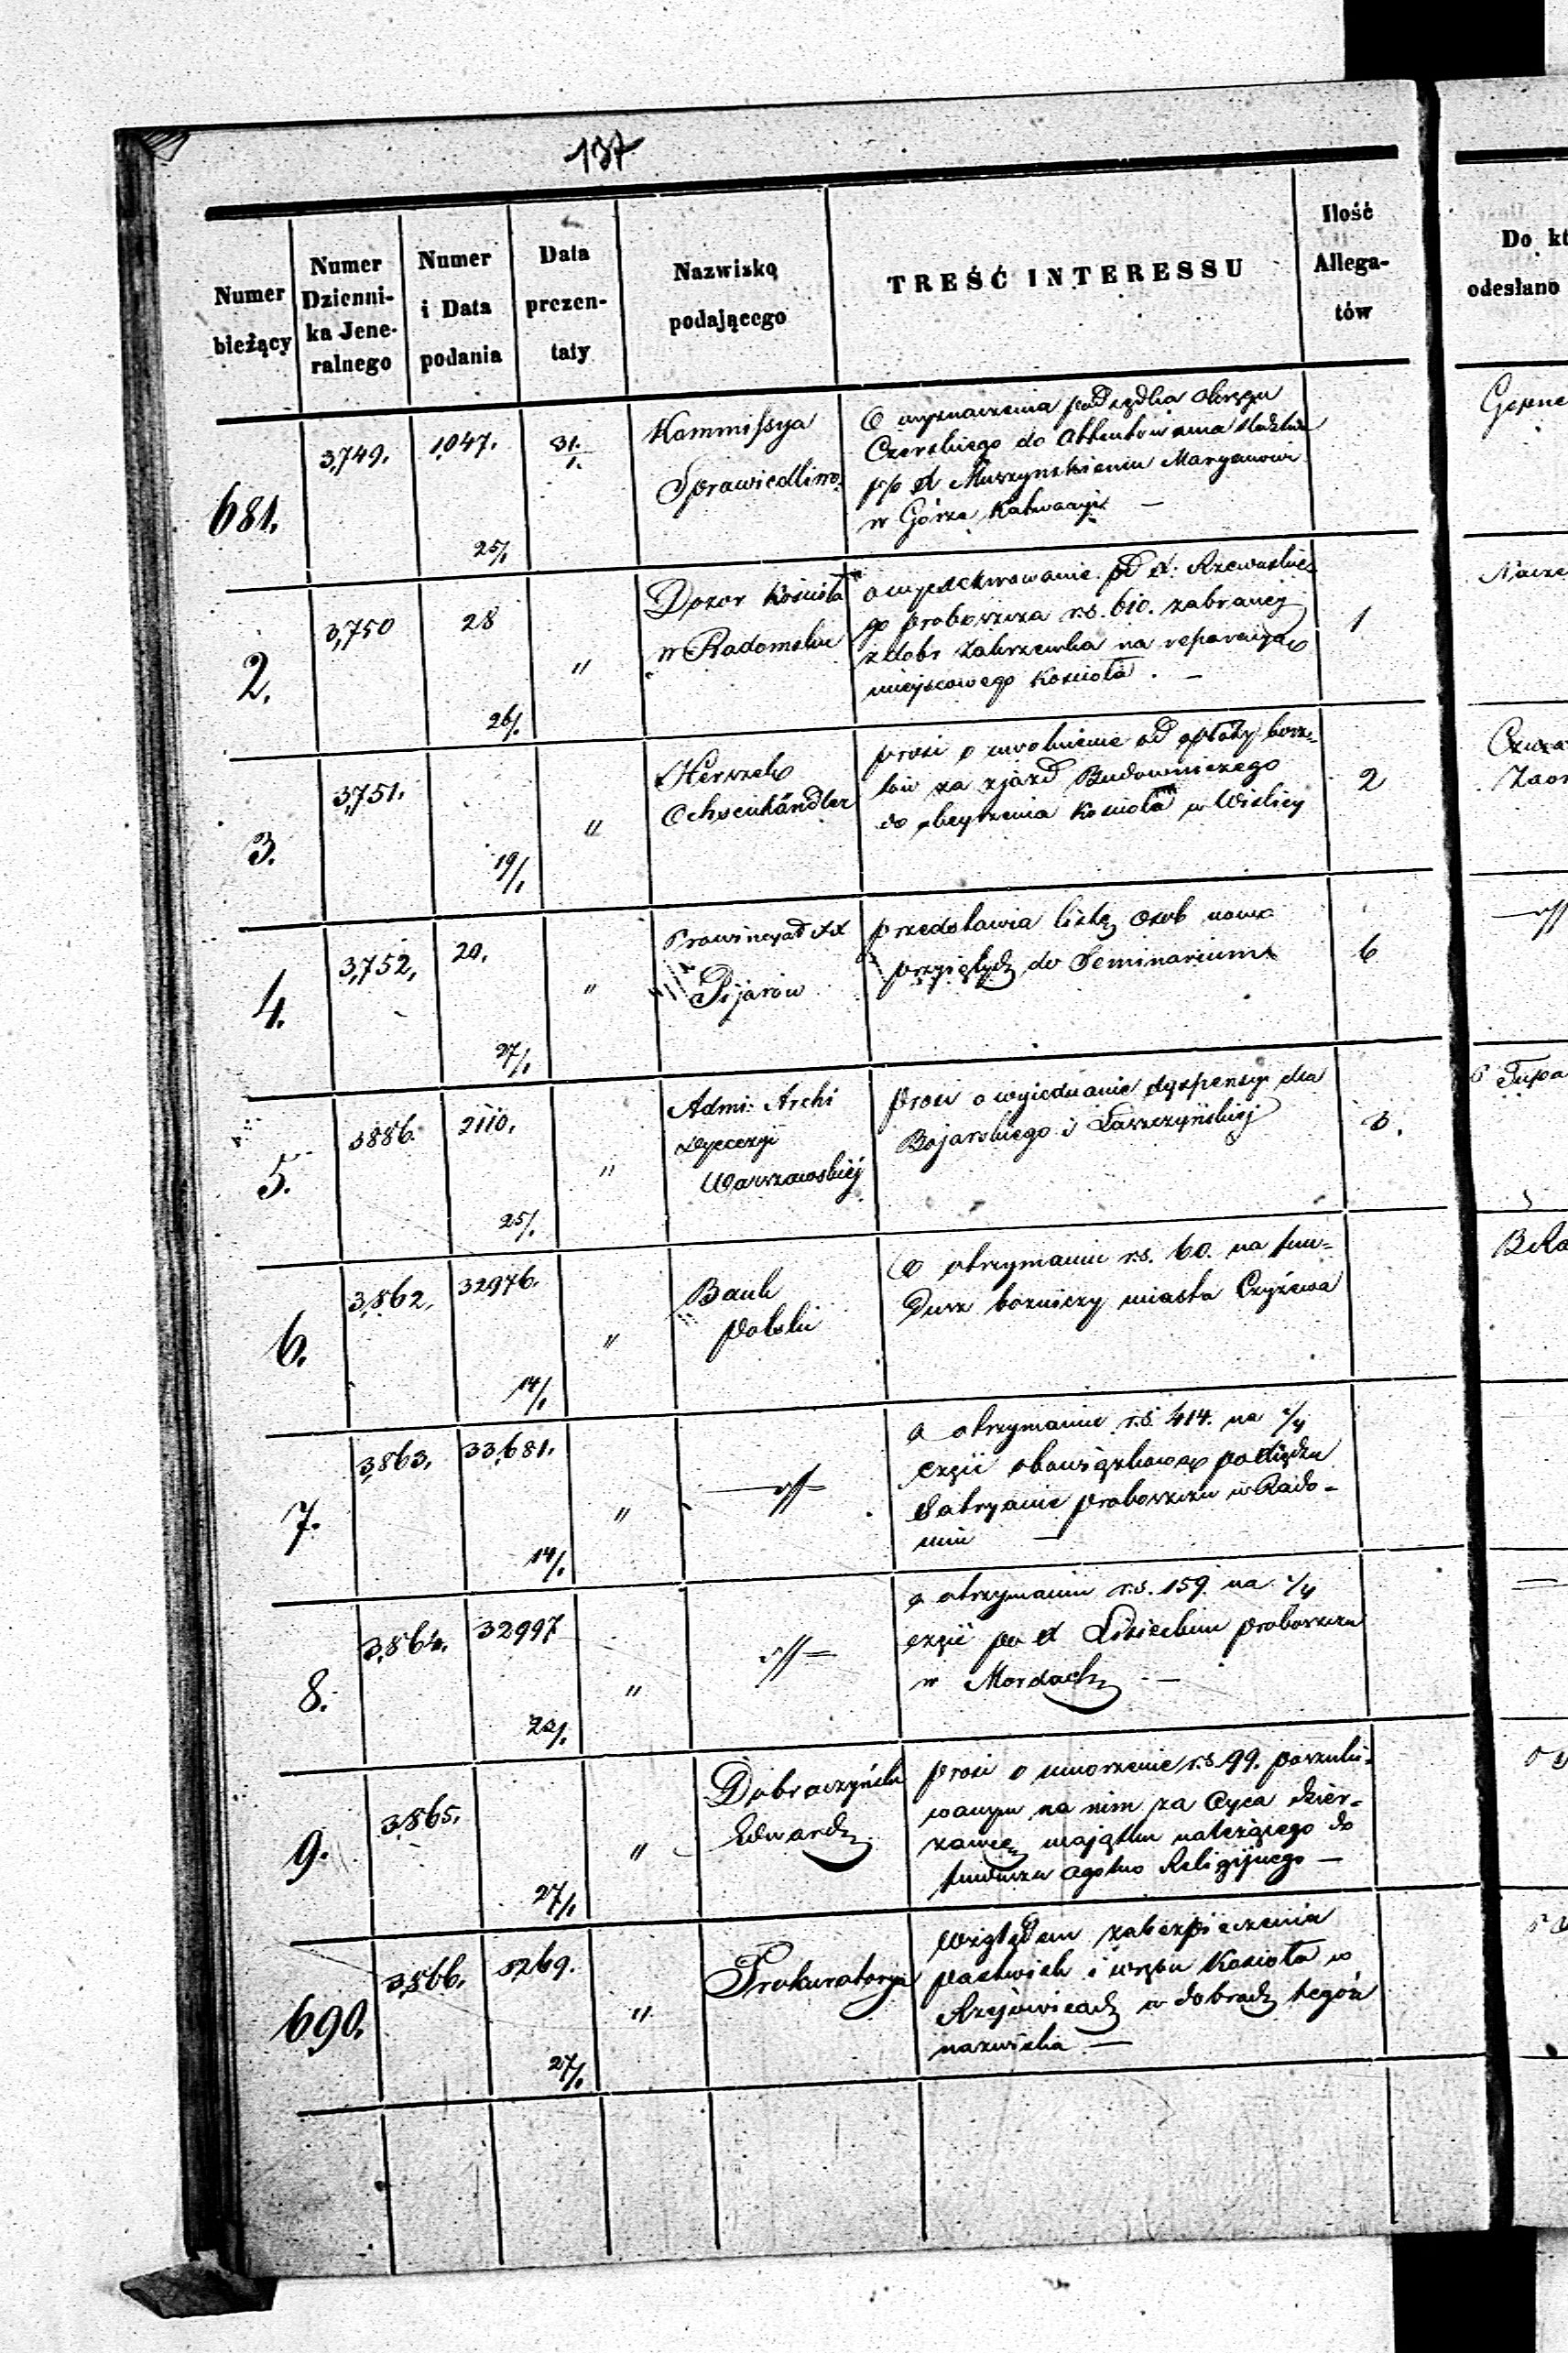 137
Numer bieżący
Numer Dzienni-ka Jene-ralnego
Numer i Data podania
Data prezen-taty
Nazwisko podającego
TREŚĆ INTERESSU
Ilość Allega-tów
Do kt
odesłano
681.
3,749.
1047.
25/1
31/1.
Kommissya
Sprawiedliwo.
O wyznaczenia podsędka Okręgu
Czerskiego do
p/o X Muszyńskiemu Maryanowi
w Górze Kalwaryi —
2.
3,750
28
26/1
"
Dozor Kościoła
w Radomsku
o wyexekwowanie od X. Rzewuskie
go proboszcza rs. 610. zabranej
z dobr Zakrzewka na reparacyą
miejscowego Kościoła. —
1
3.
3,751.
19/1
"
Herszek
Ochsenhändler
prosi o uwolnienie od opłaty kosz=
tów za zjazd Budowniczego
do obejrzenia Kościoła w Wislicy
2
4.
3,752,
20.
27/1
"
Prowincyał XX
Pijarów
przedstawia listę osob nowo
przyjętych do Seminarium
6
5.
3886.
2110.
25/1
"
Admi: Archi
Dyecezyi
Warszawskiej
Prosi o wyjednanie dyspensy dla
Bojarskiego i Łaszczyńskiej
3.
6.
3,862.
32976.
14/1
"
Bank
Polski
O otrzymaniu rs. 60. na fun=
dusz bożnicy miasta Czyżewa
7.
3,863.
33,681.
14/1
"
o otrzymaniu r.s. 414. na
część
proboszczu w Rado-
miu —
8.
3,864.
32997
"
o otrzymaniu r.s. 159. na
część po X proboszczu
w Mordach —
9.
3,865.
27/1
"
Dobraczyński
Edward
prosi o umorzenie rs 99. poszuki=
wanym na nim za Oyca dzier=
żawcę majątku należącego do
funduszu ogolno Religijnego —
690.
3,866.
5269.
27/1
"
Prokuratorya
Względem zabezpieczenia
pastwisk i wrębu Kościoła w
w dobrach tegoż
nazwiska —